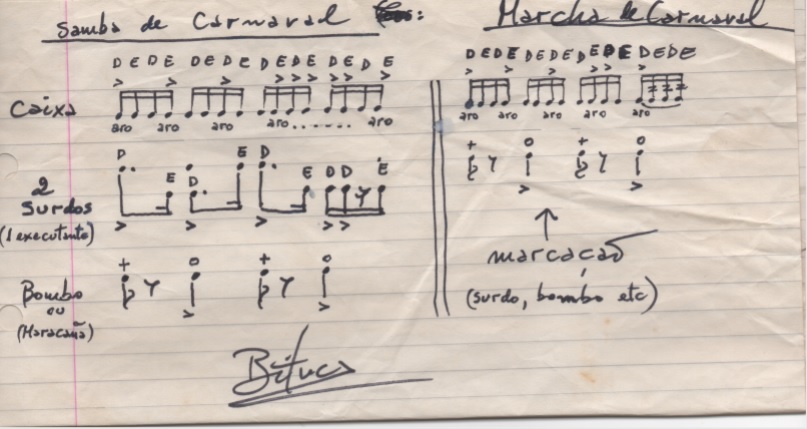 Samba de Carnaval :
Marcha de Carnaval
D E D E D E D E D E D E D E D E
D E D E D E D E D E D E D E D E
Caixa
aro aro aro aro...... aro
aro aro aro aro aro
2
Surdos
(1 executante)
D E D E D E D D E
Bombo
ou
(Maracanã)
+ o + o
+ o + o
marcação
(surdo, bombo etc)
Bituca